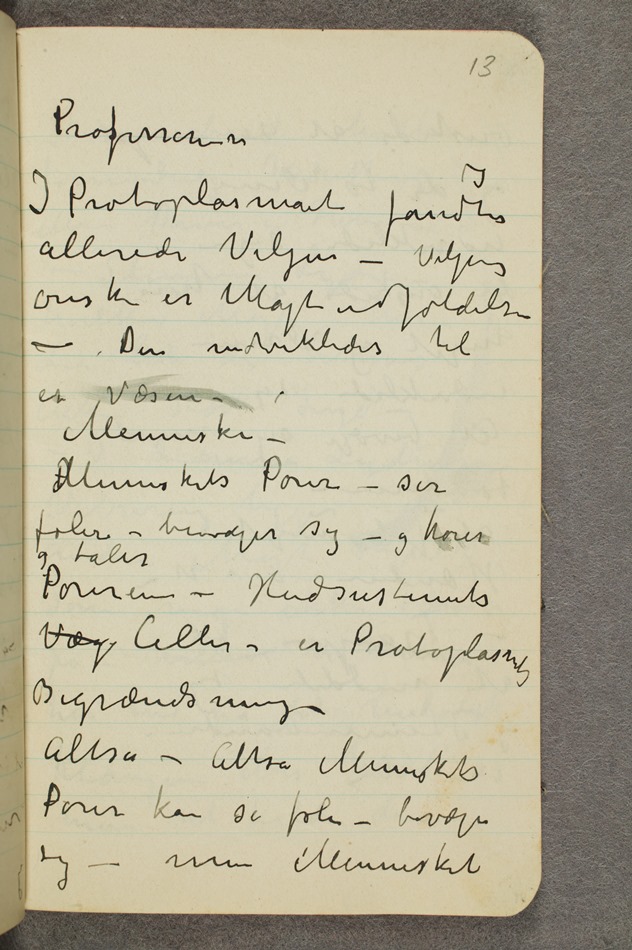 13
Professoren
I Protoplasmaet fandtes
allerede Viljen – Viljens
ønske er Magt udfoldelse
– . Den indvikledes til
et Væsen –
Menneske –
Menneskets Porer – ser
føler – bevæger sig – og hører
og taler
Porerene – Hudsystemets
Væg Celler – er Protoplasmets
Begrændsning –
Altså – Altså Menneskets
Porer kan se føle – bevæge
sig – men Mennesket